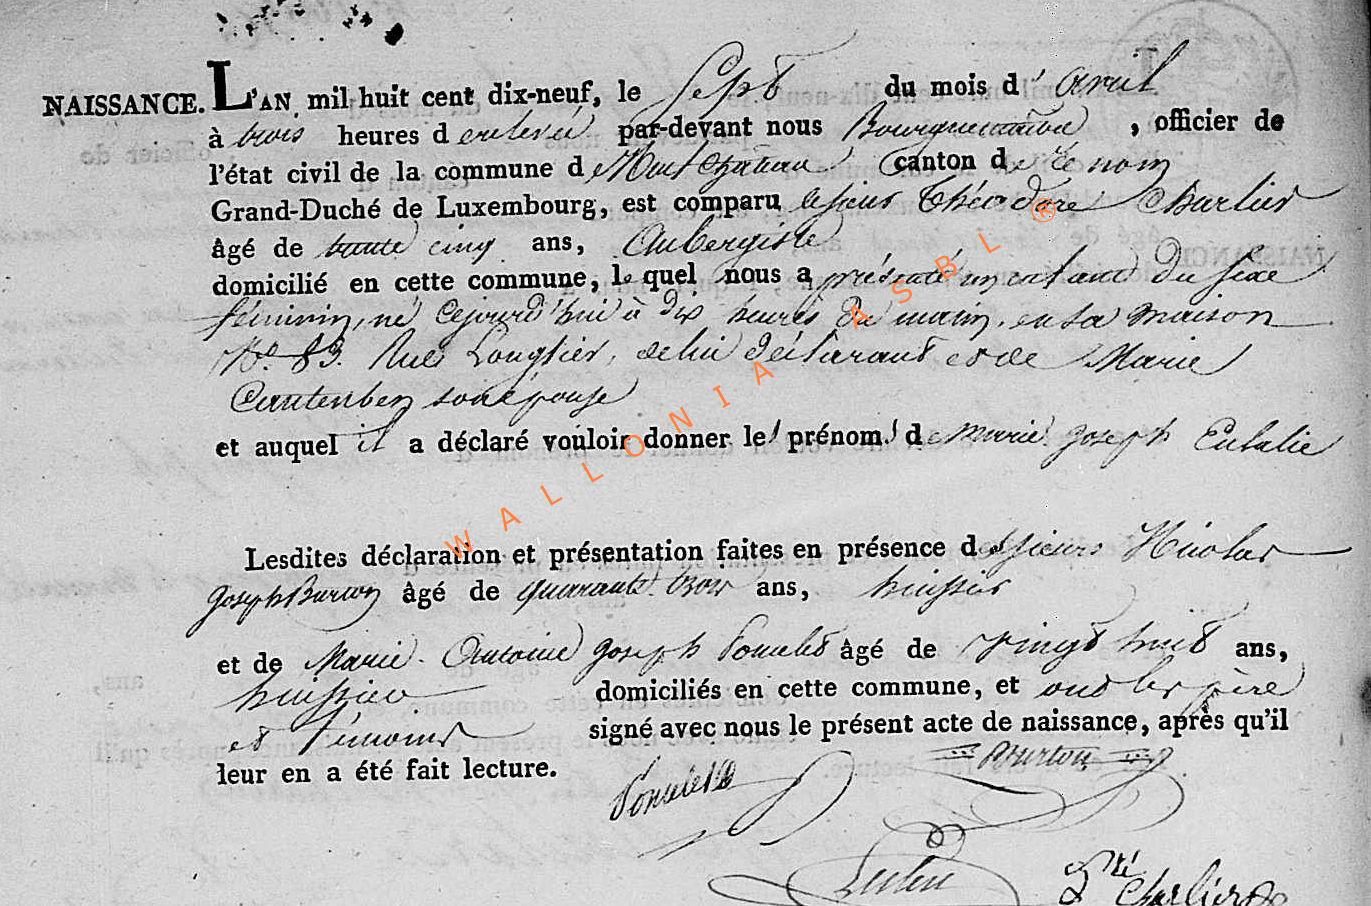 NAISSANCE. L'AN mil huit cent dix-neuf, le Sept du mois d' avril
à trois heures d e relevée par-devant nous , officier de
l'état civil de la commune d e Neufchâteau canton d e ce nom
Grand-Duché de Luxembourg, est comparu le sieur Théodore Charlier
âgé de trente cinq ans, Aubergiste
domicilié en cette commune, le quel nous a présenté un enfant Du sexe
féminin, né cejourd'hui à dix heures du matin, en sa maison
No. 83. Rue Longlier, de lui déclarant et de Marie
son épouse
et auquel il a déclaré vouloir donner les prénoms de Marie Joseph Eulalie
WALLONIA ASBL ®
Lesdites déclaration et présentation faites en présence d es sieurs Nicolas
Joseph Burton âgé de quarante trois ans, huissier
et de Marie Antoine Joseph Poncelet âgé de vingt huit ans,
huissier domiciliés en cette commune, et ont les père
et témoins signé avec nous le présent acte de naissance, après qu'il
leur en a été fait lecture.
Poncelet Burton
Charlier